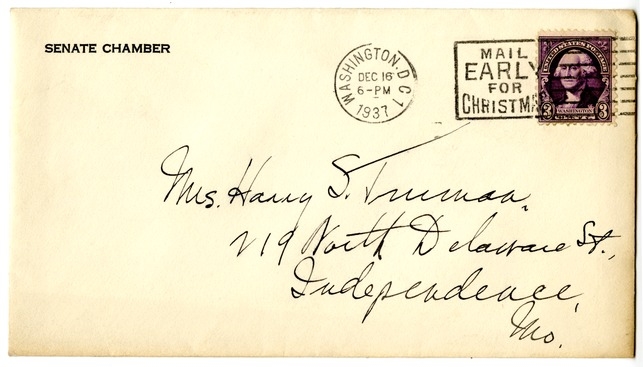 SENATE CHAMBER
WASHINGTON. D.C. 1
DEC 16
6-PM
1937
MAIL
EARLY
FOR
CHRISTMA
UNITED STATES POSTAGE
3 WASHINGTON 3
Mrs. Harry S. Truman,
219 North Delaware St.,
Independence,
Mo.